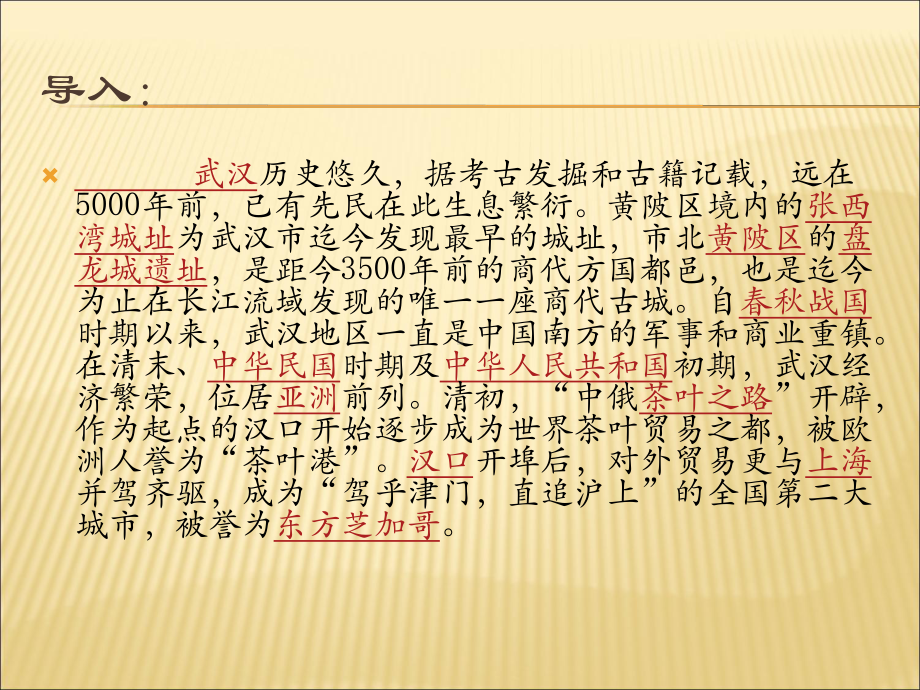 导入：
武汉历史悠久，据考古发掘和古籍记载，远在
5000年前，已有先民在此生息繁衍。黄陂区境内的张西
湾城址为武汉市迄今发现最早的城址，市北黄陂区的盘
龙城遗址，是距今3500年前的商代方国都邑，也是迄今
为止在长江流域发现的唯一一座商代古城。自春秋战国
时期以来，武汉地区一直是中国南方的军事和商业重镇。
在清末、中华民国时期及中华人民共和国初期，武汉经
济繁荣，位居亚洲前列。清初，“中俄茶叶之路”开辟，
作为起点的汉口开始逐步成为世界茶叶贸易之都，被欧
洲人誉为“茶叶港”。汉口开埠后，对外贸易更与上海
并驾齐驱，成为“驾乎津门，直追沪上”的全国第二大
城市，被誉为东方芝加哥。